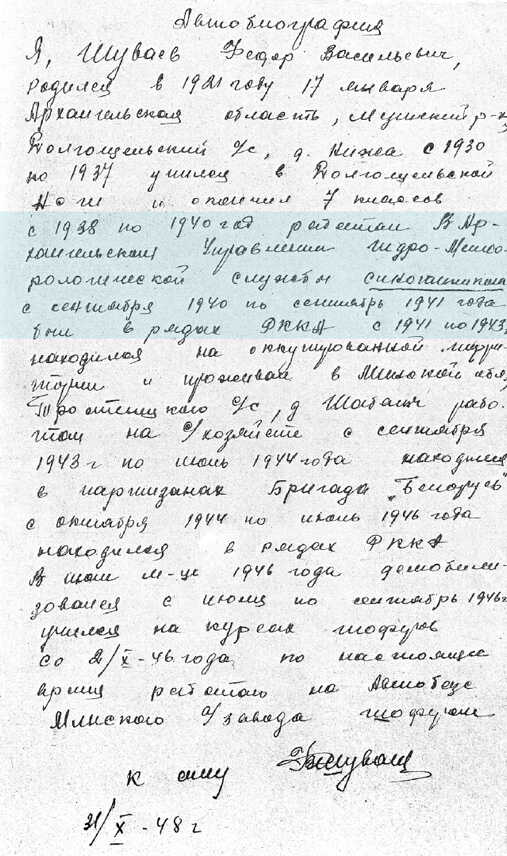 Автобиография
Я, Шуваев Федор Васильевич,
родился в 1921 году 17 января
Архангельская область, Мезенский р-н
Долгощельский с/с, д. Кижа с 1930
по 1937 учился в Долгощельской
и окончил 7 классов
с 1938 по 1940 год работал в Ар-
хангельском Управлении гидро-Метео-
рологической службы
с сентября 1940 по сентябрь 1941 года
был в рядах РККА с 1941 по 1943,
находился на оккупированной терри-
тории и проживал в Минской обл,
Тростенецкого с/с, д Шабаны рабо-
тал на с/хозяйстве с сентября
1943 г по июль 1944 года находился
в партизанах Бригада "Беларусь"
с октября 1944 по июль 1946 года
находился в рядах РККА
В июле м-це 1946 года демобили-
зовался с июля по сентябрь 1946 г
учился на курсах шоферов
со 2/X-46 года по настоящее
время работаю на Автобазе
Минского с/завода шофером
к сему
21/X-48 г